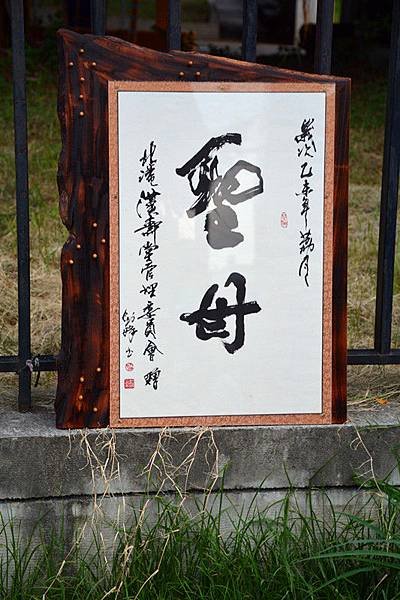 歲次乙未年荷月
聖母
北港漢壽堂管理委員會 贈